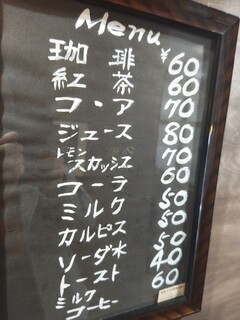 Menu
珈琲 ¥60
紅茶 60
コ・ア 70
ジュース 80
レモンスカッシエ 70
コーラ 60
ミルク 50
カルピス 50
ソーダ水 50
トースト 40
ミルクコーヒー 60